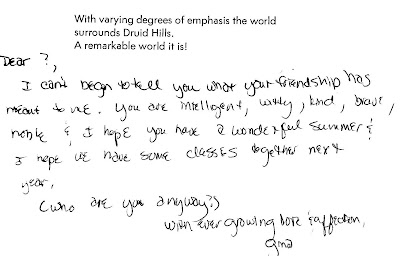 With varying degrees of emphasis the world
surrounds Druid Hills.
A remarkable world it is!
Dear ?,
I can't begin to tell you what your friendship has
meant to me. You are intelligent, witty, kind, brave,
noble & I hope you have a wonderful summer &
I hope we have some classes together next
year,
(who are you anyway?)
with ever growing love & affection,